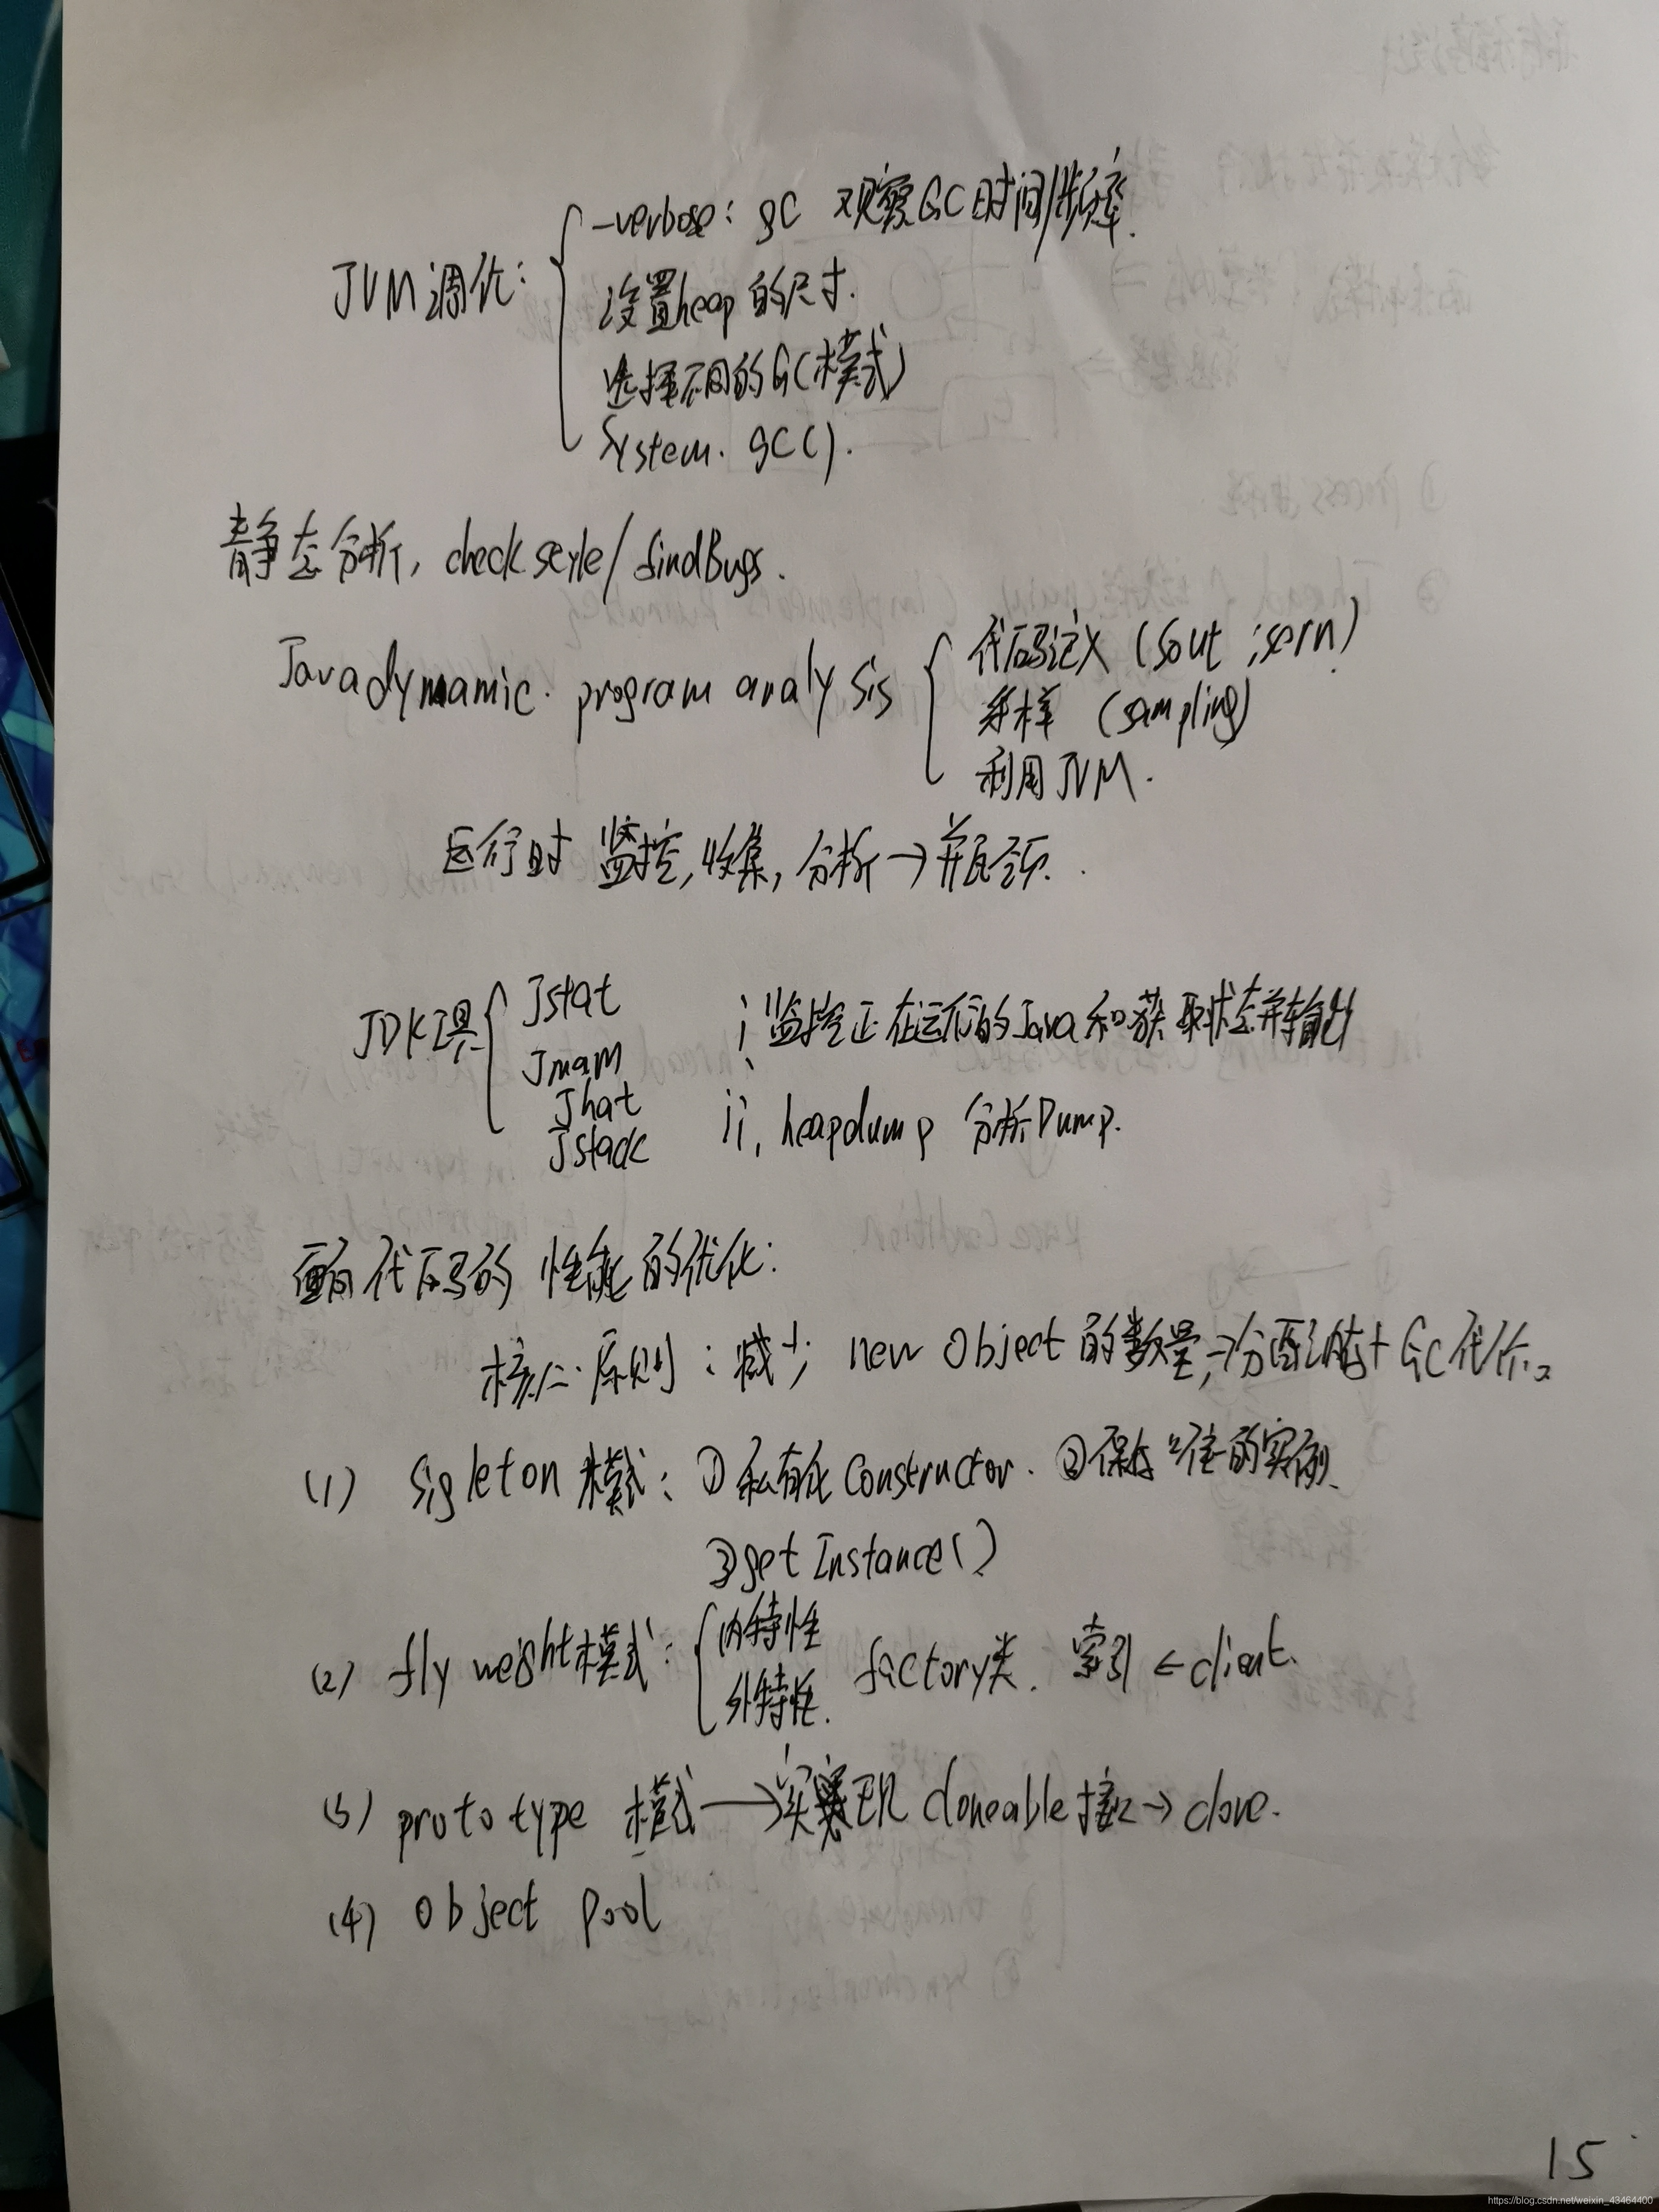 JVM调优:
-verbose: gc 观察GC时间/频率.
设置heap的尺寸.
选择不同的GC模式
System. gc().
静态分析, checkstyle/findBugs.
Java dynamic. program analysis
代码注入 (sout ;
采样 (sampling)
利用JVM.
运行时 监控, 收集, 分析→并瓶颈.
JDK工具
Jstat
Jmam
Jhat
Jstack
i 监控正在运行的Java和获取状态并输出
ii, heapdump 分析Dump.
面向代码的 性能的优化:
核心原则: 减少 new object 的数量,→分配 + GC代价。
(1) Sigleton 模式: ①私有化 Constructor. ②保持唯一的实例.
③getInstance()
(2) fly weight模式:
内特性
外特性.
factory类. 索引 ← client.
(3) prototype 模式→实现 cloneable 接口→ clone.
(4) object pool
15
https://blog.csdn.net/weixin_43464400